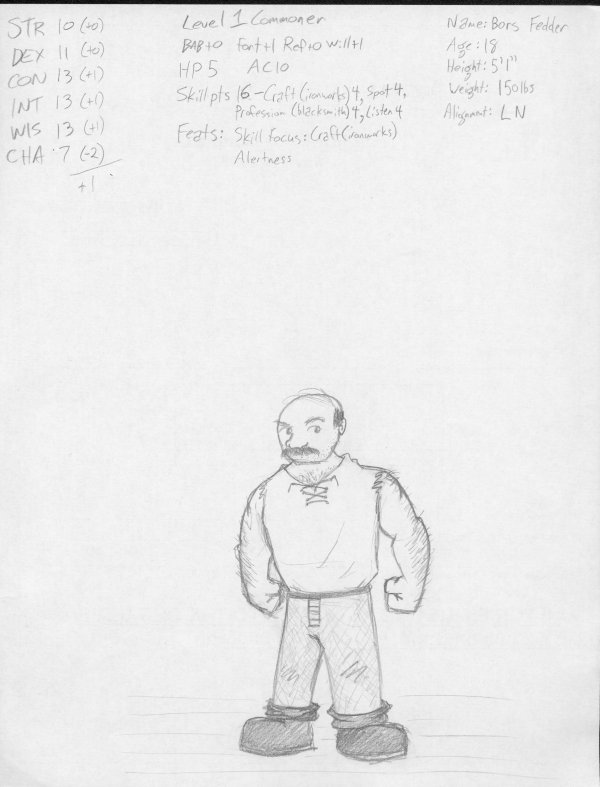 STR 10 (+0)
DEX 11 (+0)
CON 13 (+1)
INT 13 (+1)
WIS 13 (+1)
CHA 7 (-2)
+1
Level 1 Commoner
BAB+0 Fort+1 Ref+0 Will+1
HP 5 AC10
Skill pts 16-Craft (ironworks) 4, Spot 4,
Profession (blacksmith) 4, Listen 4
Feats: Skill focus: Craft (ironworks)
Alertness
Name: Bors Fedder
Age: 18
Height: 5'1"
Weight: 150lbs
Alignment: LN